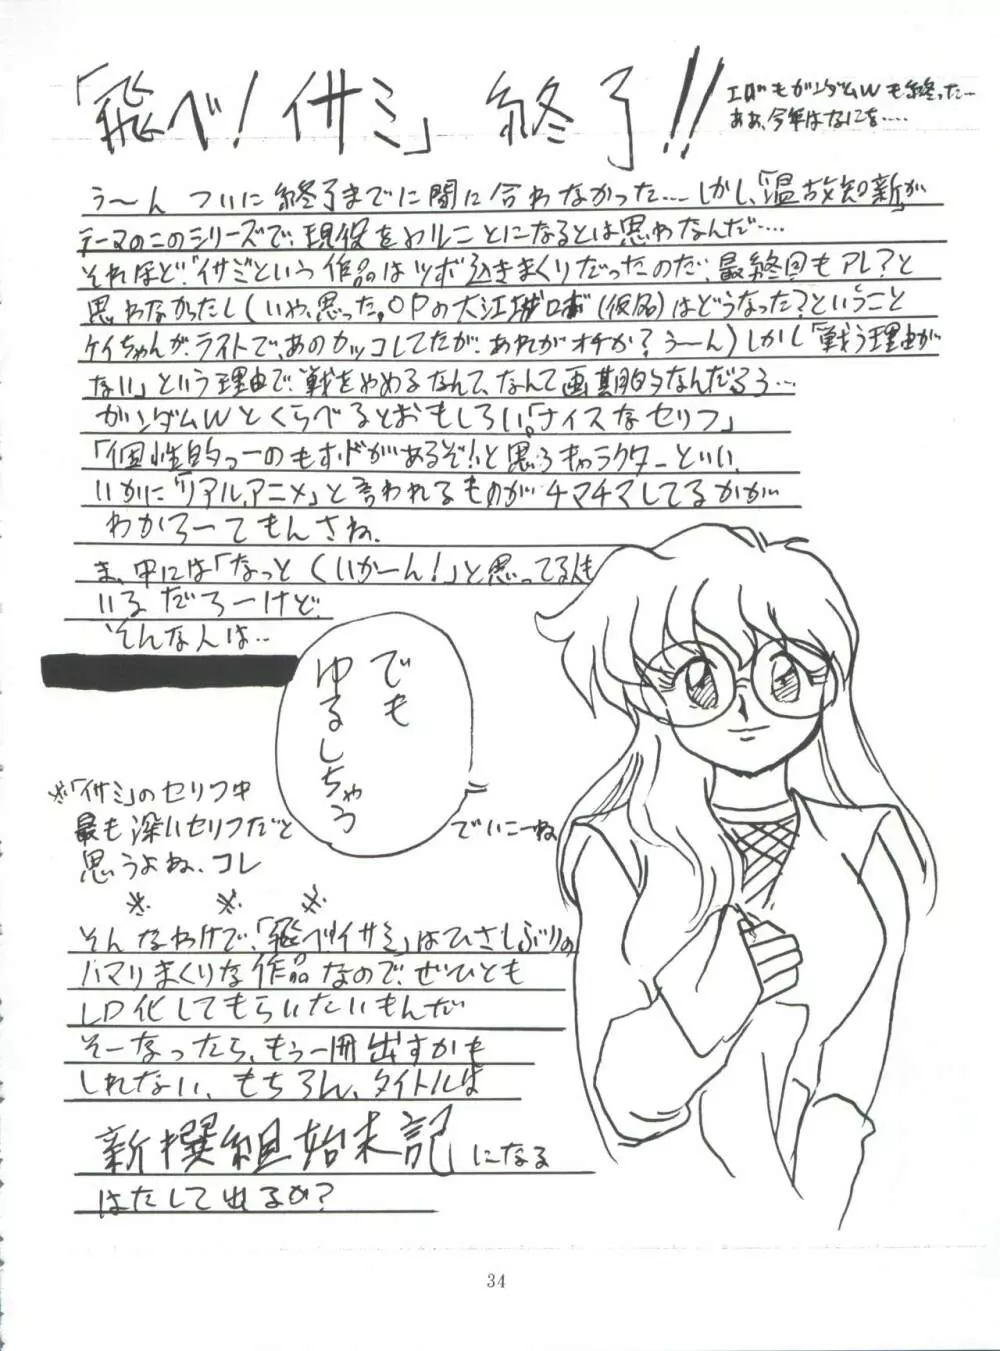 「飛べ！イサミ」終了!!
エヴァもガンダムWも終わった…
ああ、今年はなにを……
う〜ん ついに終了までに間に合わなかった……しかし、「温故知新」が
テーマのこのシリーズで、現役をやることになるとは思わなんだ……
それほど「イサミ」という作品はツボ込きまくりだったのだ、最終回もアレ？と
思わなかったし（いや、思った。OPの大江城ロボ（仮名）はどうなった？ということ
ケイちゃんが、ラストで、あのカッコしてたが、あれがオチか？う〜ん）しかし「戦う理由が
ない」という理由で、戦をやめるなんて、なんて画期的なんだろう…
ガンダムWとくらべるとおもしろい。「ナイスなセリフ」
「個性的っーのもホドがあるぞ！」と思うキャラクターといい、
いかに「リアル、アニメ」と言われるものがチマチマしてるかが
わかろーてもんさね。
ま、中には「なっとくいかーん！」と思ってる人も
いるだろーけど、
そんな人は‥
でも
ゆるしちゃう
でいこーね
※「イサミ」のセリフ中
最も深いセリフだと
思うよね、コレ
※ ※ ※
そんなわけで、「飛べ！イサミ」はひさしぶりの
ハマりまくりな作品なので、ぜひとも
LD化してもらいたいもんだ
そーなったら、もう一冊出すかも
しれない、もちろん、タイトルは
新撰組始末記になる
はたして出るか？
34